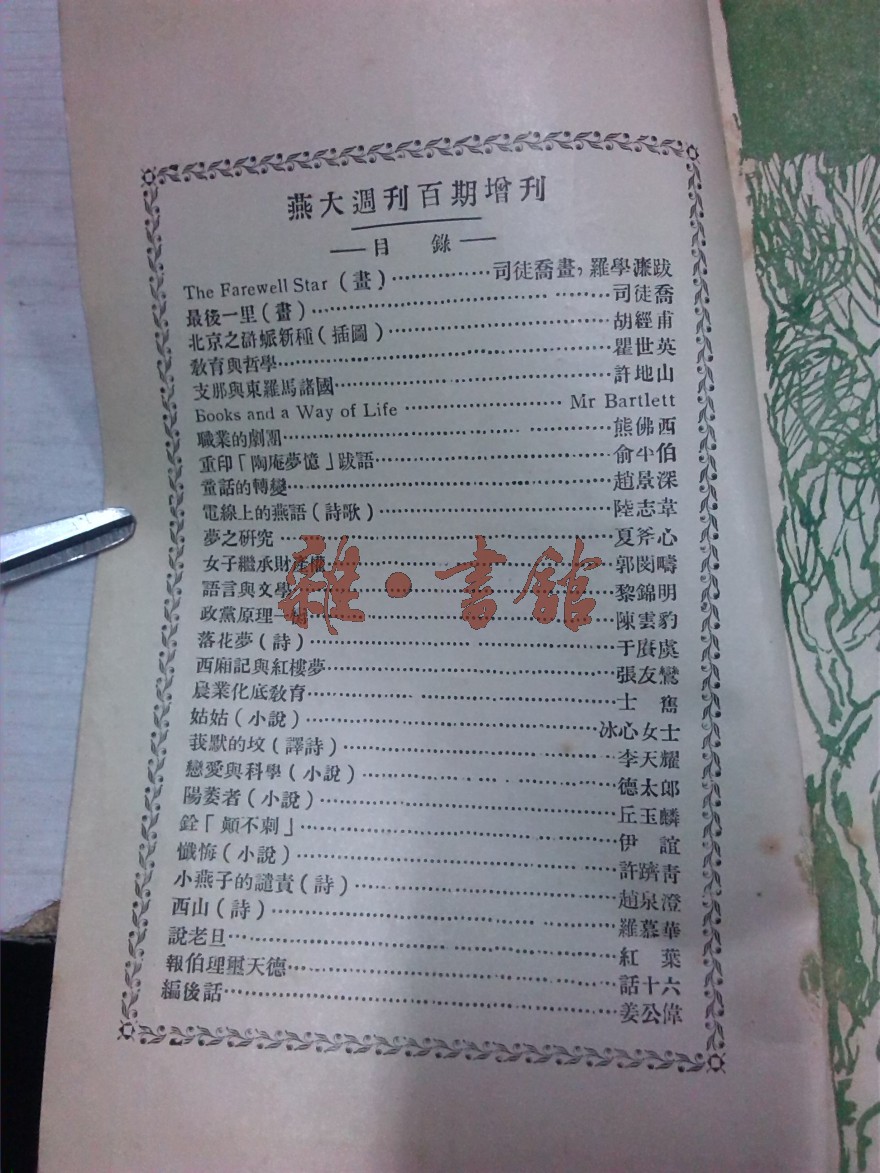 燕大週刊百期增刊
——目 錄——
The Farewell Star (畫)……………司徒喬畫，羅學濂跋
最後一里(畫)……………司徒喬
北京之滸蜁新種(插圖)……………胡經甫
教育與哲學……………瞿世英
支那與東羅馬諸國……………許地山
Books and a Way of Life……………Mr Bartlett
職業的劇團……………熊佛西
重印「陶庵夢憶」跋語……………俞平伯
童話的轉變……………趙景深
電線上的燕語(詩歌)……………陸志韋
夢之研究……………夏斧心
女子繼承財產權……………郭閔疇
語言與文學……………黎錦明
政黨原理一……………陳雲豹
落花夢(詩)……………于賡虞
西廂記與紅樓夢……………張友鸞
農業化底教育……………士
姑姑(小說)……………冰心女士
莪默的坟(譯詩)……………李天耀
戀愛與科學(小說)……………德太郎
陽萎者(小說)……………丘玉麟
銓「顛不剌」……………伊 誼
懺悔(小說)……………許躋青
小燕子的譴責(詩)……………趙泉澄
西山(詩)……………羅慕華
說老旦……………紅 葉
報伯理璽天德……………話十六
編後話……………姜公偉
雜・書館